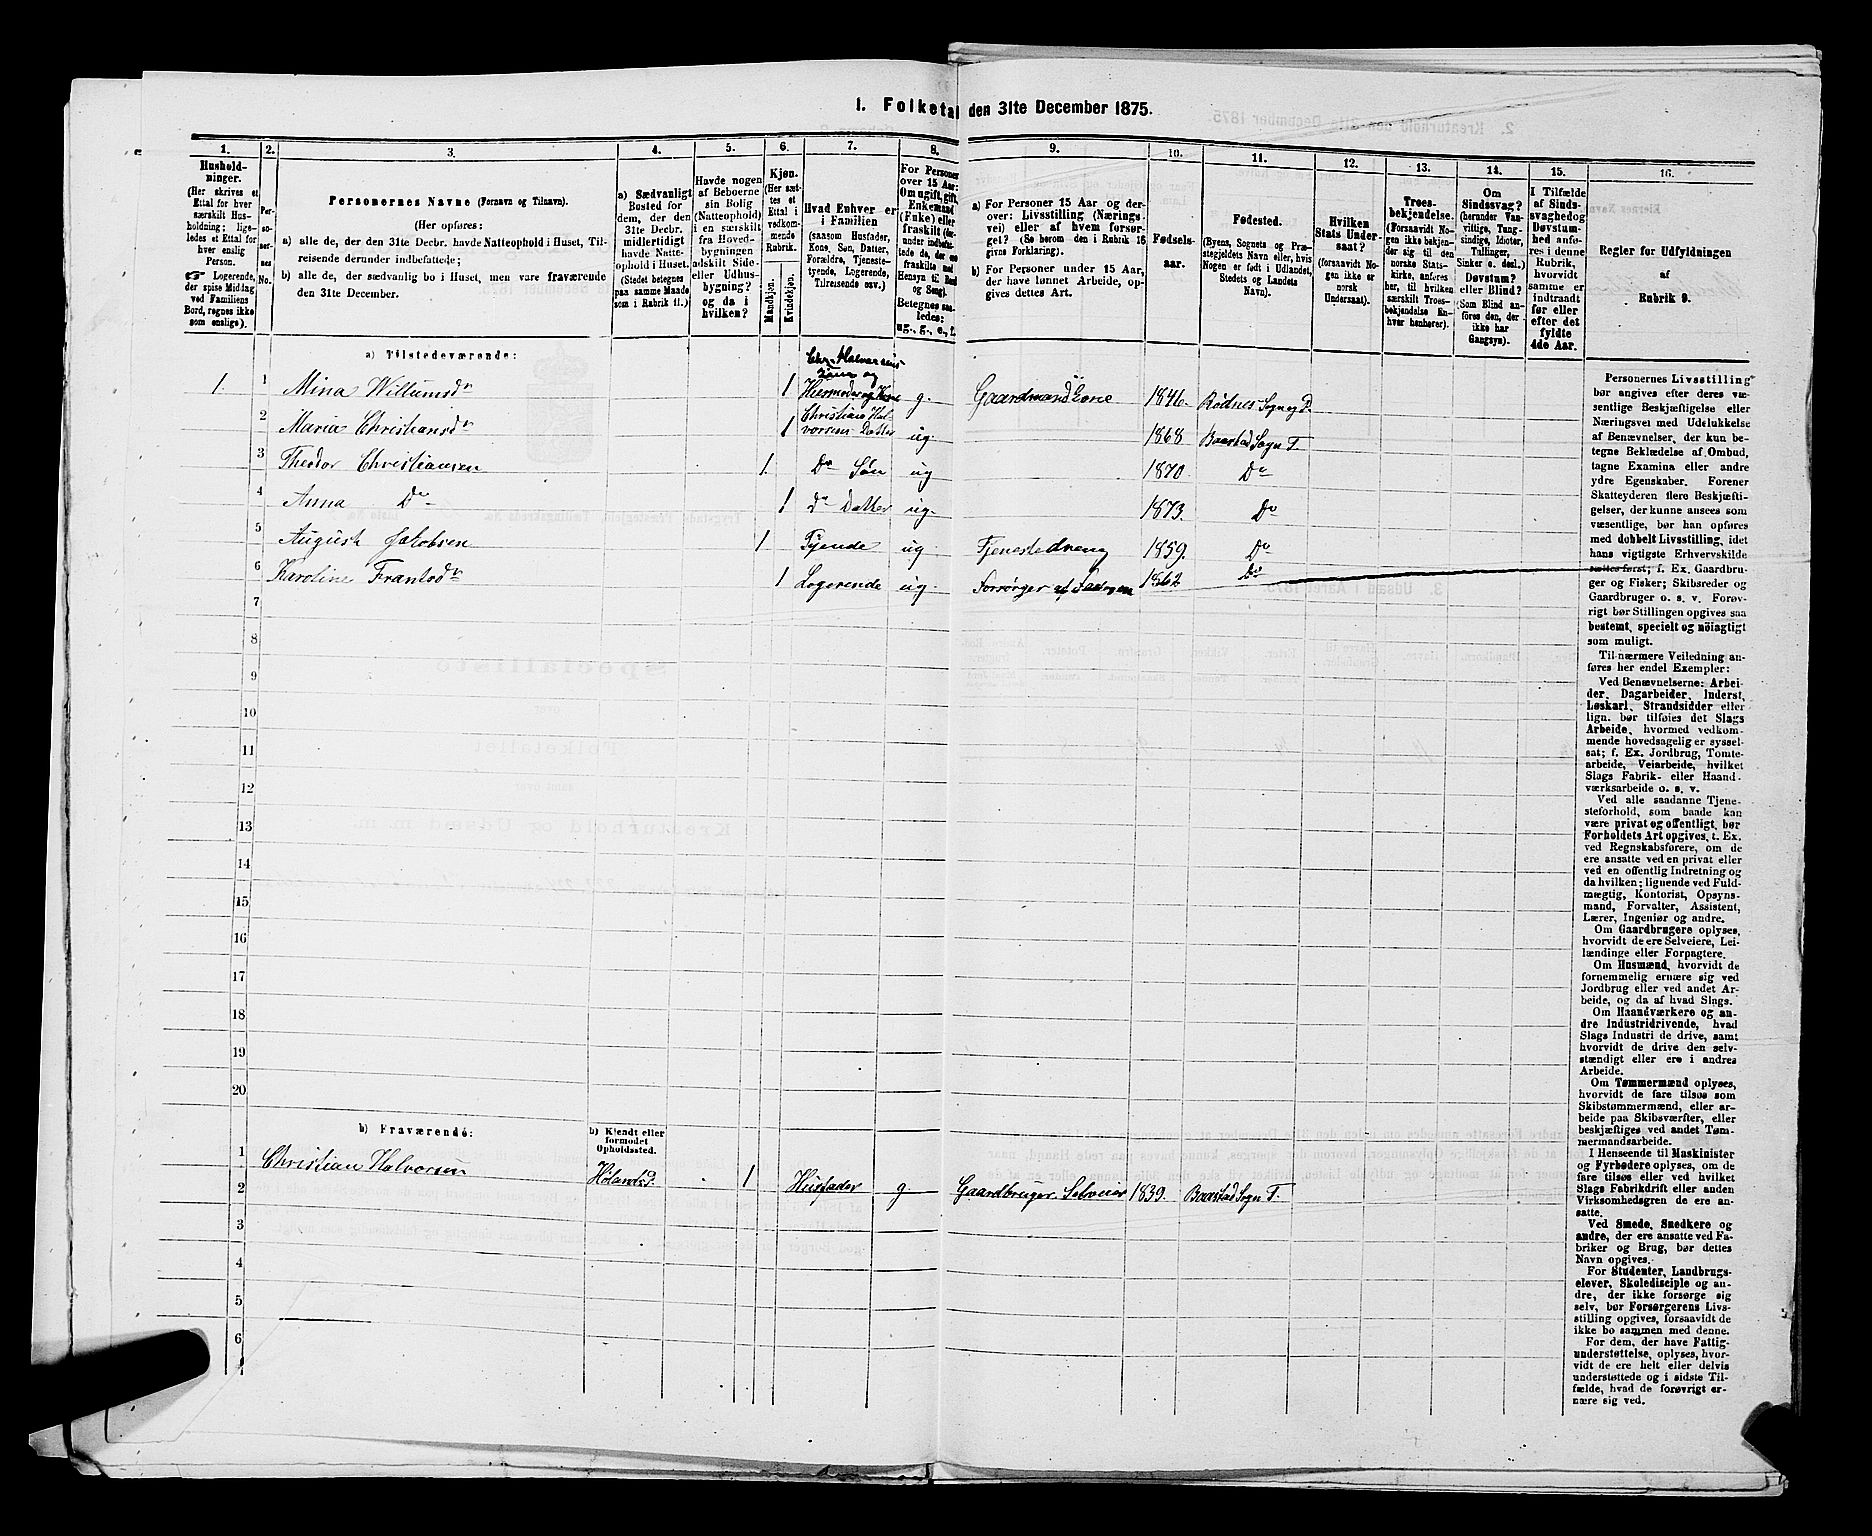 1. Folketal den 31te December 1875.
1.
Hushold-
ninger.
(Her skrives et
Ettal for hver
særskilt Hus-
holdning; lige-
ledes et Ettal for
hver enslig
Person.
☞ Logerende,
der spise Middag
ved Familiens
Bord, regnes ikke
som enslige).
2.
Per-
so-
ner-
nes
No.
3.
Personernes Navne (Fornavn og Tilnavn).
(Her opføres:
a) alle de, der den 31te Decbr. havde Natteophold i Huset, Til-
reisende derunder indbefattede;
b) alle de, der sædvanlig bo i Huset, men vare fraværende
den 31te December.
4.
a) Sædvanligt
Bosted for
dem, der den
31te Decbr.
midlertidigt
havde Natte-
ophold i Huset.
(Stedet betegnes
paa samme Maade
som i Rubrik 11.)
5.
Havde nogen
af Beboerne
sin Bolig
(Natteophold)
i en særskilt
fra Hoved-
bygningen
adskilt Side-
eller Udhus-
bygning?
og da i
hvilken?
6.
Kjøn.
(Her sæt-
tes et
Ettal i
vedkom-
mende
Rubrik.
Mandkjøn.
Kvindekjøn.
7.
Hvad Enhver er
i Familien
(saasom Husfader,
Kone, Søn, Datter,
Forældre, Tjeneste-
tyende, Logerende,
Tilreisende osv.)
8.
For Personer
over 15 Aar:
Om ugift, gift,
Enkemand
(Enke) eller
fraskilt (for-
under indbefat-
tede de, der ere
fraskilte med
Hensyn til Bord
og Seng).
Betegnes saa-
ledes:
ug., g., e., f.
9.
a) For Personer 15 Aar og der-
over: Livsstilling (Nærings-
vei) eller af hvem forsør-
get? (Se herom den i Rubrik 16
givne Forklaring).
b) For Personer under 15 Aar,
der have lønnet Arbeide, op-
gives dettes Art.
10.
Fødsels-
aar.
11.
Fødested.
(Byens, Sognets og Præ-
stegjeldets Navn eller, hvis
Nogen er født i Udlandet,
Stedets og Landets
Navn).
12.
Hvilken
Stats Under-
saat?
(forsaavidt No-
gen ikke er
norsk
Undersaat).
13.
Troes-
bekjendelse.
(Forsaavidt No-
gen ikke bekjen-
der sig til den
norske Stats-
kirke, anføres
her, til hvilken
særskilt Troes-
bekjendelse En-
hver henhører).
14.
Om
Sindssvag?
(herunder Van-
vittige, Tung-
sindige, Idioter,
Tullinger,
Sinker o. desl.)
Døvstum?
eller Blind?
(Som Blind an-
føres den, der
ikke har
Gangsyn).
15.
I Tilfælde
af Sinds-
svaghed og
Døvstum-
hed anfø-
res i denne
Rubrik,
hvorvidt
samme er
indtraadt
før eller
efter det
fyldte
4de Aar.
16.
Regler for Udfyldningen
af
Rubrik 9.
a) Tilstedeværende:
1. 1 Mina Willumsdr 1 Chr. Halvorsens Kone og Husmoder og Kone g. Gaardmandskone 1846. Rødnes Sogn og P.
2 Maria Christiansdr 1 Christian Halvorsens Datter ug. 1868 Baastad Sogn T.
3 Theodor Christiansen 1 Do Søn ug 1870 Do
4 Anna Do 1 do Datter ug. 1873. Do
5 August Jakobsen 1 Tjende ug. Tjenestedreng 1859. Do
6 Karoline Frantsdr 1 Logerende ug. Forsørger af Faderen 1862. Do
7
8
9
10
11
12
13
14
15
16
17
18
19
20
b) Fraværende:
b) Kjendt eller
formodet
Opholdssted.
1 Christian Halvorsen Hølands P. 1 Husfader g. Gaardbruger. Selveier 1839. Baastad Sogn T.
2
3
4
5
6
Personernes Livsstilling
bør angives efter deres væ-
sentlige Beskjæftigelse eller
Næringsvei med Udelukkelse
af Benævnelser, der kun be-
tegne Beklædelse af Ombud,
tagne Examina eller andre
ydre Egenskaber. Forener
Skatteyderen flere Beskjæfti-
gelser, der kunne ansees som
væsentlige, bør han opføres
med dobbelt Livsstilling, idet
hans vigtigste Erhvervskilde
sættes først; f. Ex. Gaardbru-
ger og Fisker; Skibsreder og
Gaardbruger o. s. v. Forøv-
rigt bør Stillingen opgives saa
bestemt, specielt og nöiagtigt
som muligt.
Til nærmere Veiledning an-
føres her endel Exempler:
Ved Benævnelserne: Arbei-
der, Dagarbeider, Inderst,
Løskarl, Strandsidder eller
lign. bør tilføies det Slags
Arbeide, hvormed vedkom-
mende hovedsagelig er syssel-
sat; f. Ex. Jordbrug, Tomte-
arbeide, Veiarbeide, hvilket
Slags Fabrik- eller Haand-
værksarbeide o. s. v.
Ved alle saadanne Tjene-
steforhold, som baade kan
være privat og offentligt, bør
Forholdets Art opgives, t. Ex.
ved Regnskabsførere, om de
ere ansatte ved en privat eller
ved en offentlig Indretning og
da hvilken; lignende ved Fuld-
mægtig, Kontorist, Opsyns-
mand, Forvalter, Assistent,
Lærer, Ingeniør og andre.
Om Gaardbrugere oplyses,
hvorvidt de ere Selveiere, Lei-
lændinge eller Forpagtere.
Om Husmænd, hvorvidt de
fornemmelig ernære sig ved
Jordbrug eller ved andet Ar-
beide, og da af hvad Slags.
Om Haandværkere og an-
dre Industridrivende, hvad
Slags Industri de drive, samt
hvorvidt de drive den selv-
stændigt eller ere i andres
Arbeide.
Om Tømmermænd oplyses,
hvorvidt de fare tilsøs som
Skibstømmermænd, eller ar-
beide paa Skibsværfter, eller
beskjæftiges ved andet Tøm-
mermandsarbeide.
I Henseende til Maskinister
og Fyrbødere oplyses, om de
fare tilsøs eller ved hvilket
Slags Fabrikdrift eller anden
Virksomhedsgren de ere an-
satte.
Ved Smede, Snedkere og
andre, der ere ansatte ved Fa-
briker og Brug, bør dettes
Navn opgives.
For Studenter, Landbrugs-
elever, Skoledisciple og an-
dre, der ikke forsørge sig
selv, bør Forsørgerens Livs-
stilling opgives, forsaavidt de
ikke bo sammen med denne.
For dem, der have Fattig-
understøttelse, oplyses, hvor-
vidt de ere helt eller delvis
understøttede og i sidste Til-
fælde, hvad de forøvrigt er-
nære sig ved.